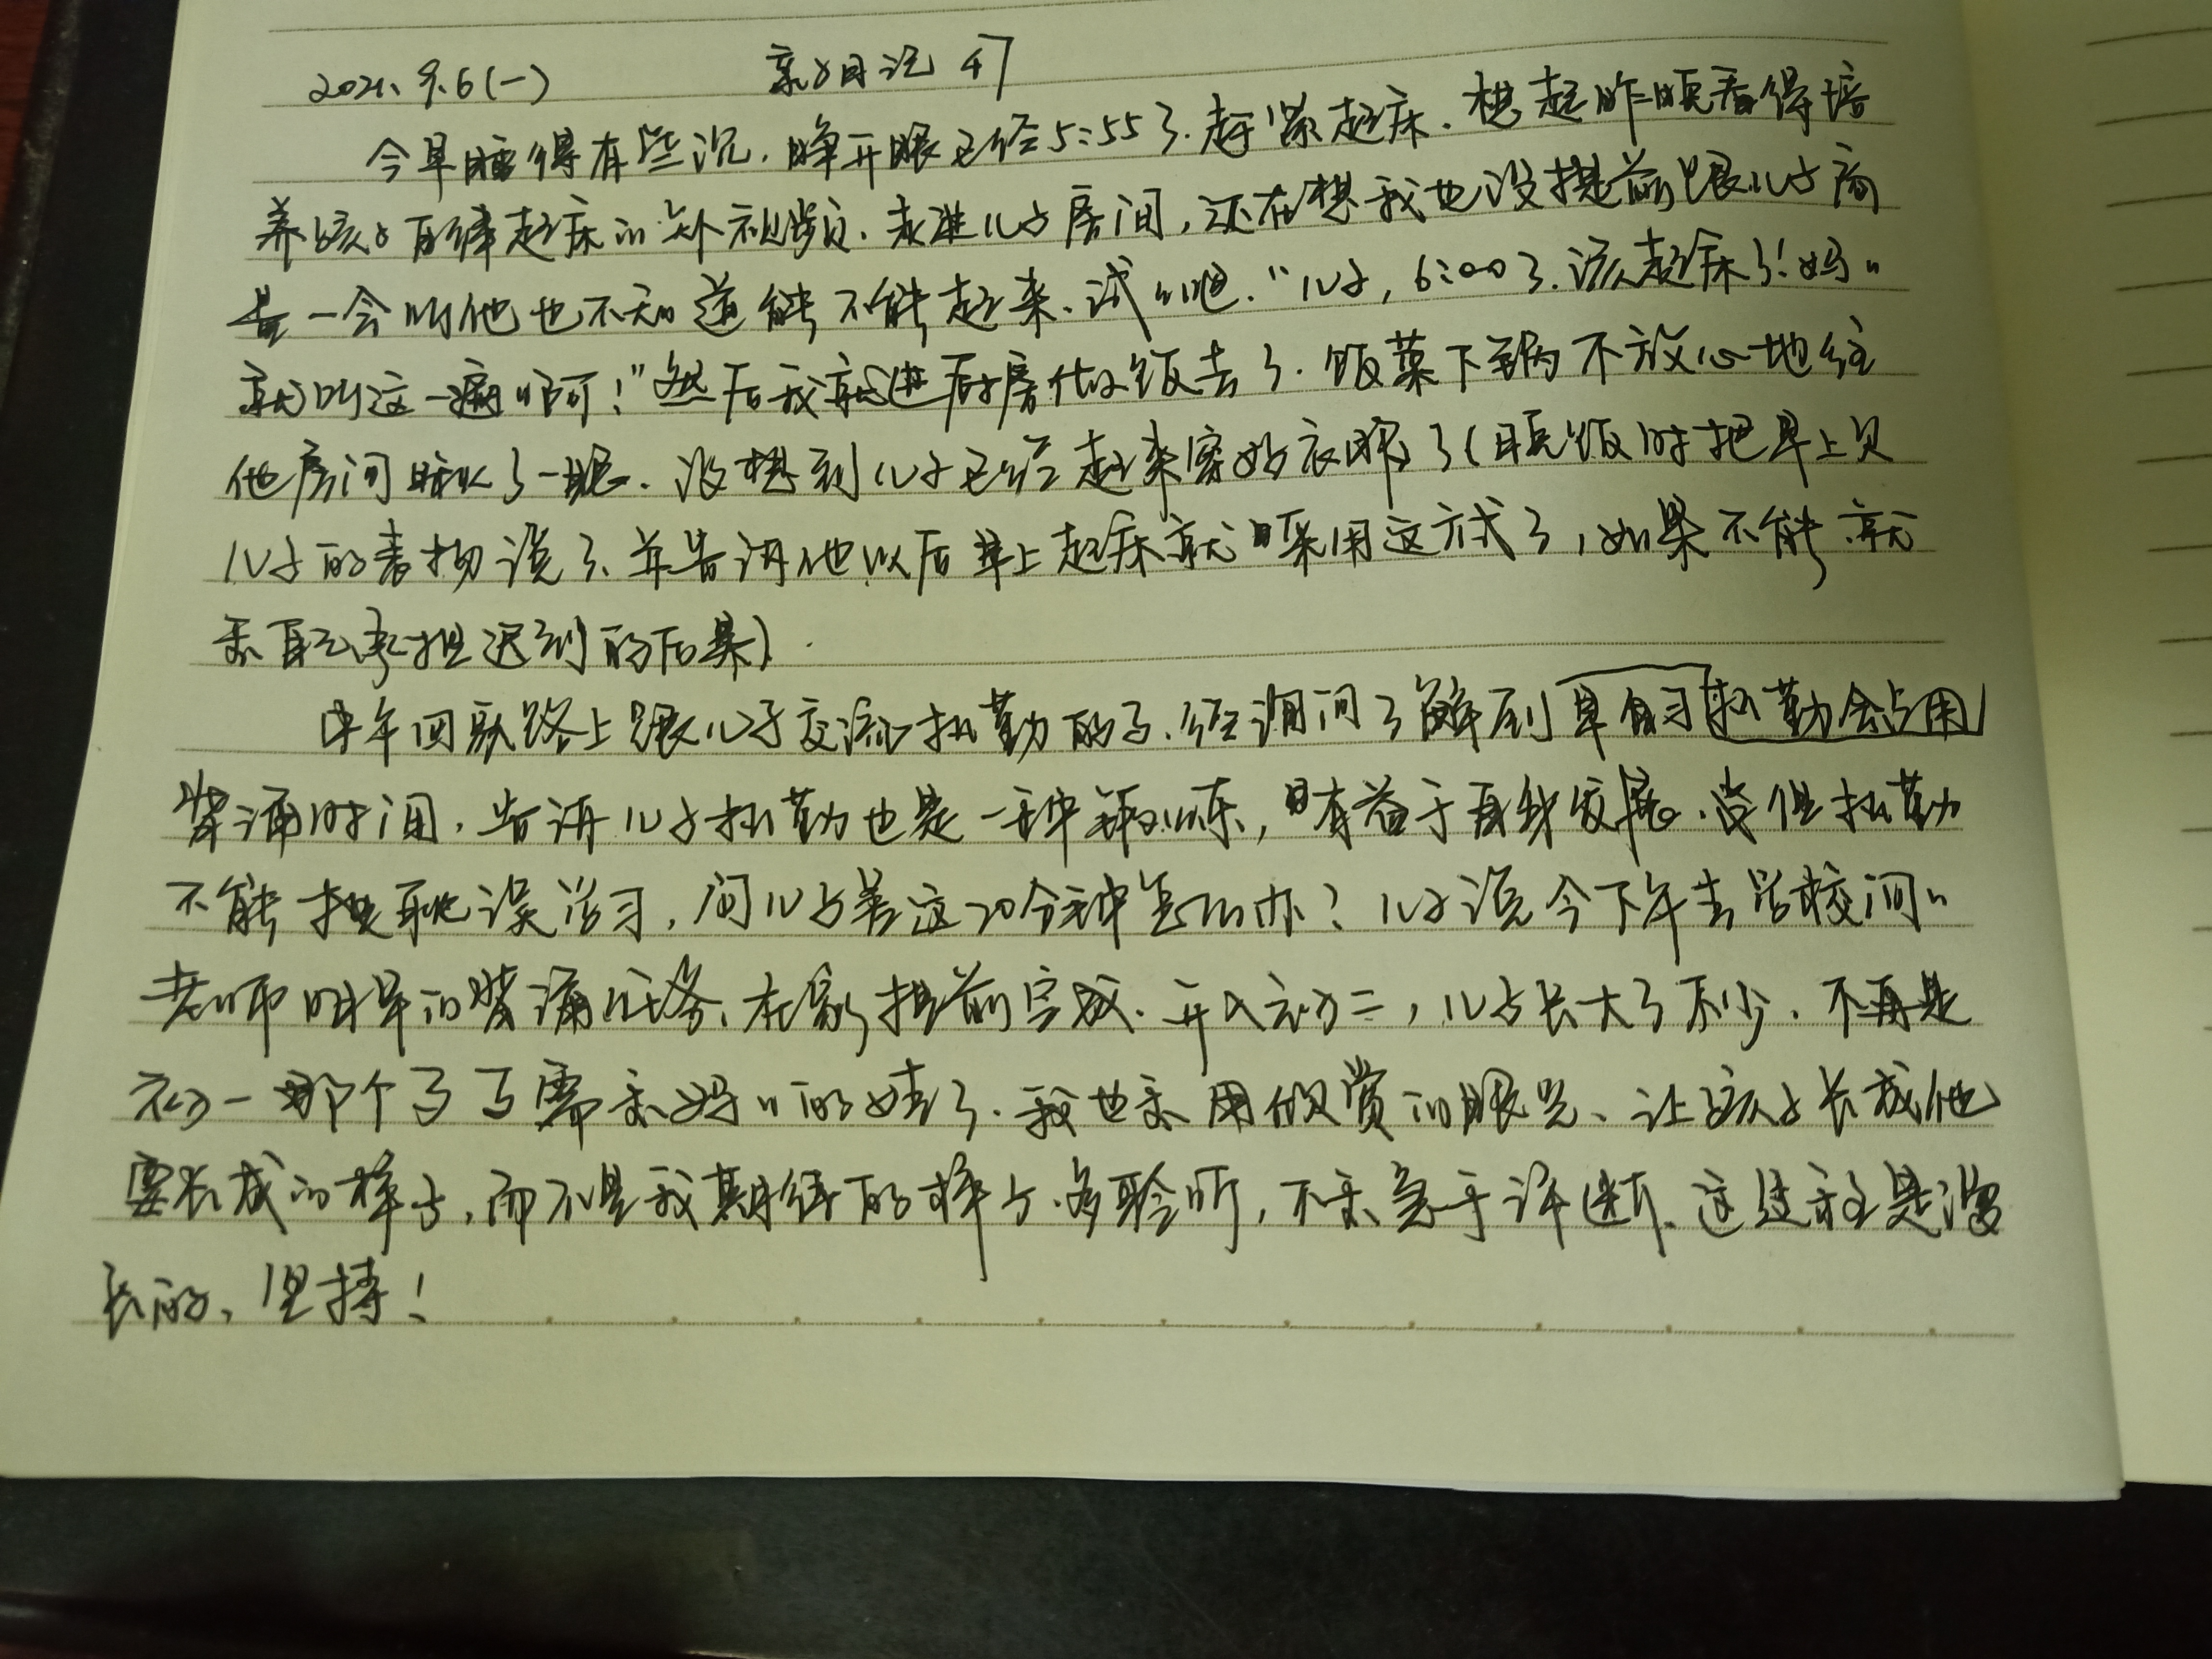 2021.9.6(一) 亲子日记 47
今早睡得有些沉,睁开眼已经5:55了.赶紧起床.想起昨晚看得培
养孩子自律起床的 视频、走进儿子房间,还在想我也没提前跟儿子商
量一会叫他也不知道能不能起来、试试吧.“儿子,6:00了.该起床了!妈〃
就叫这一遍啊!”然后我就进厨房做饭去了.饭菜下锅不放心地往
他房间瞅了一眼、没想到儿子已经起来穿好衣服了(晚饭时把早上对
儿子的表扬说了、并告诉他以后早上起床就采用这方式了,如果不能就
要自己承担迟到的后果).
中午回家路上跟儿子交流执勤的事.经询问了解到早自习执勤会占用
背诵时间,告诉儿子执勤也是一种锻炼,且有益于自身发展.当但执勤
不能耽误学习,问儿子差这20分钟怎么办?儿子说今下午去学校问〃
老师明早的背诵任务、在家提前完成.升入初二,儿子长大了不少.不再是
初一那个事事需要妈〃的娃了.我也要用欣赏的眼光、让孩子长成他
要长成的样子,而不是我期待的样子.多聆听,不要急于评判.这过程是漫
长的、坚持!